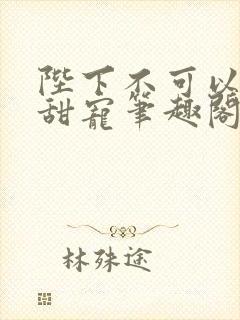 陛下不可以
甜寵筆趣閣
林殊途